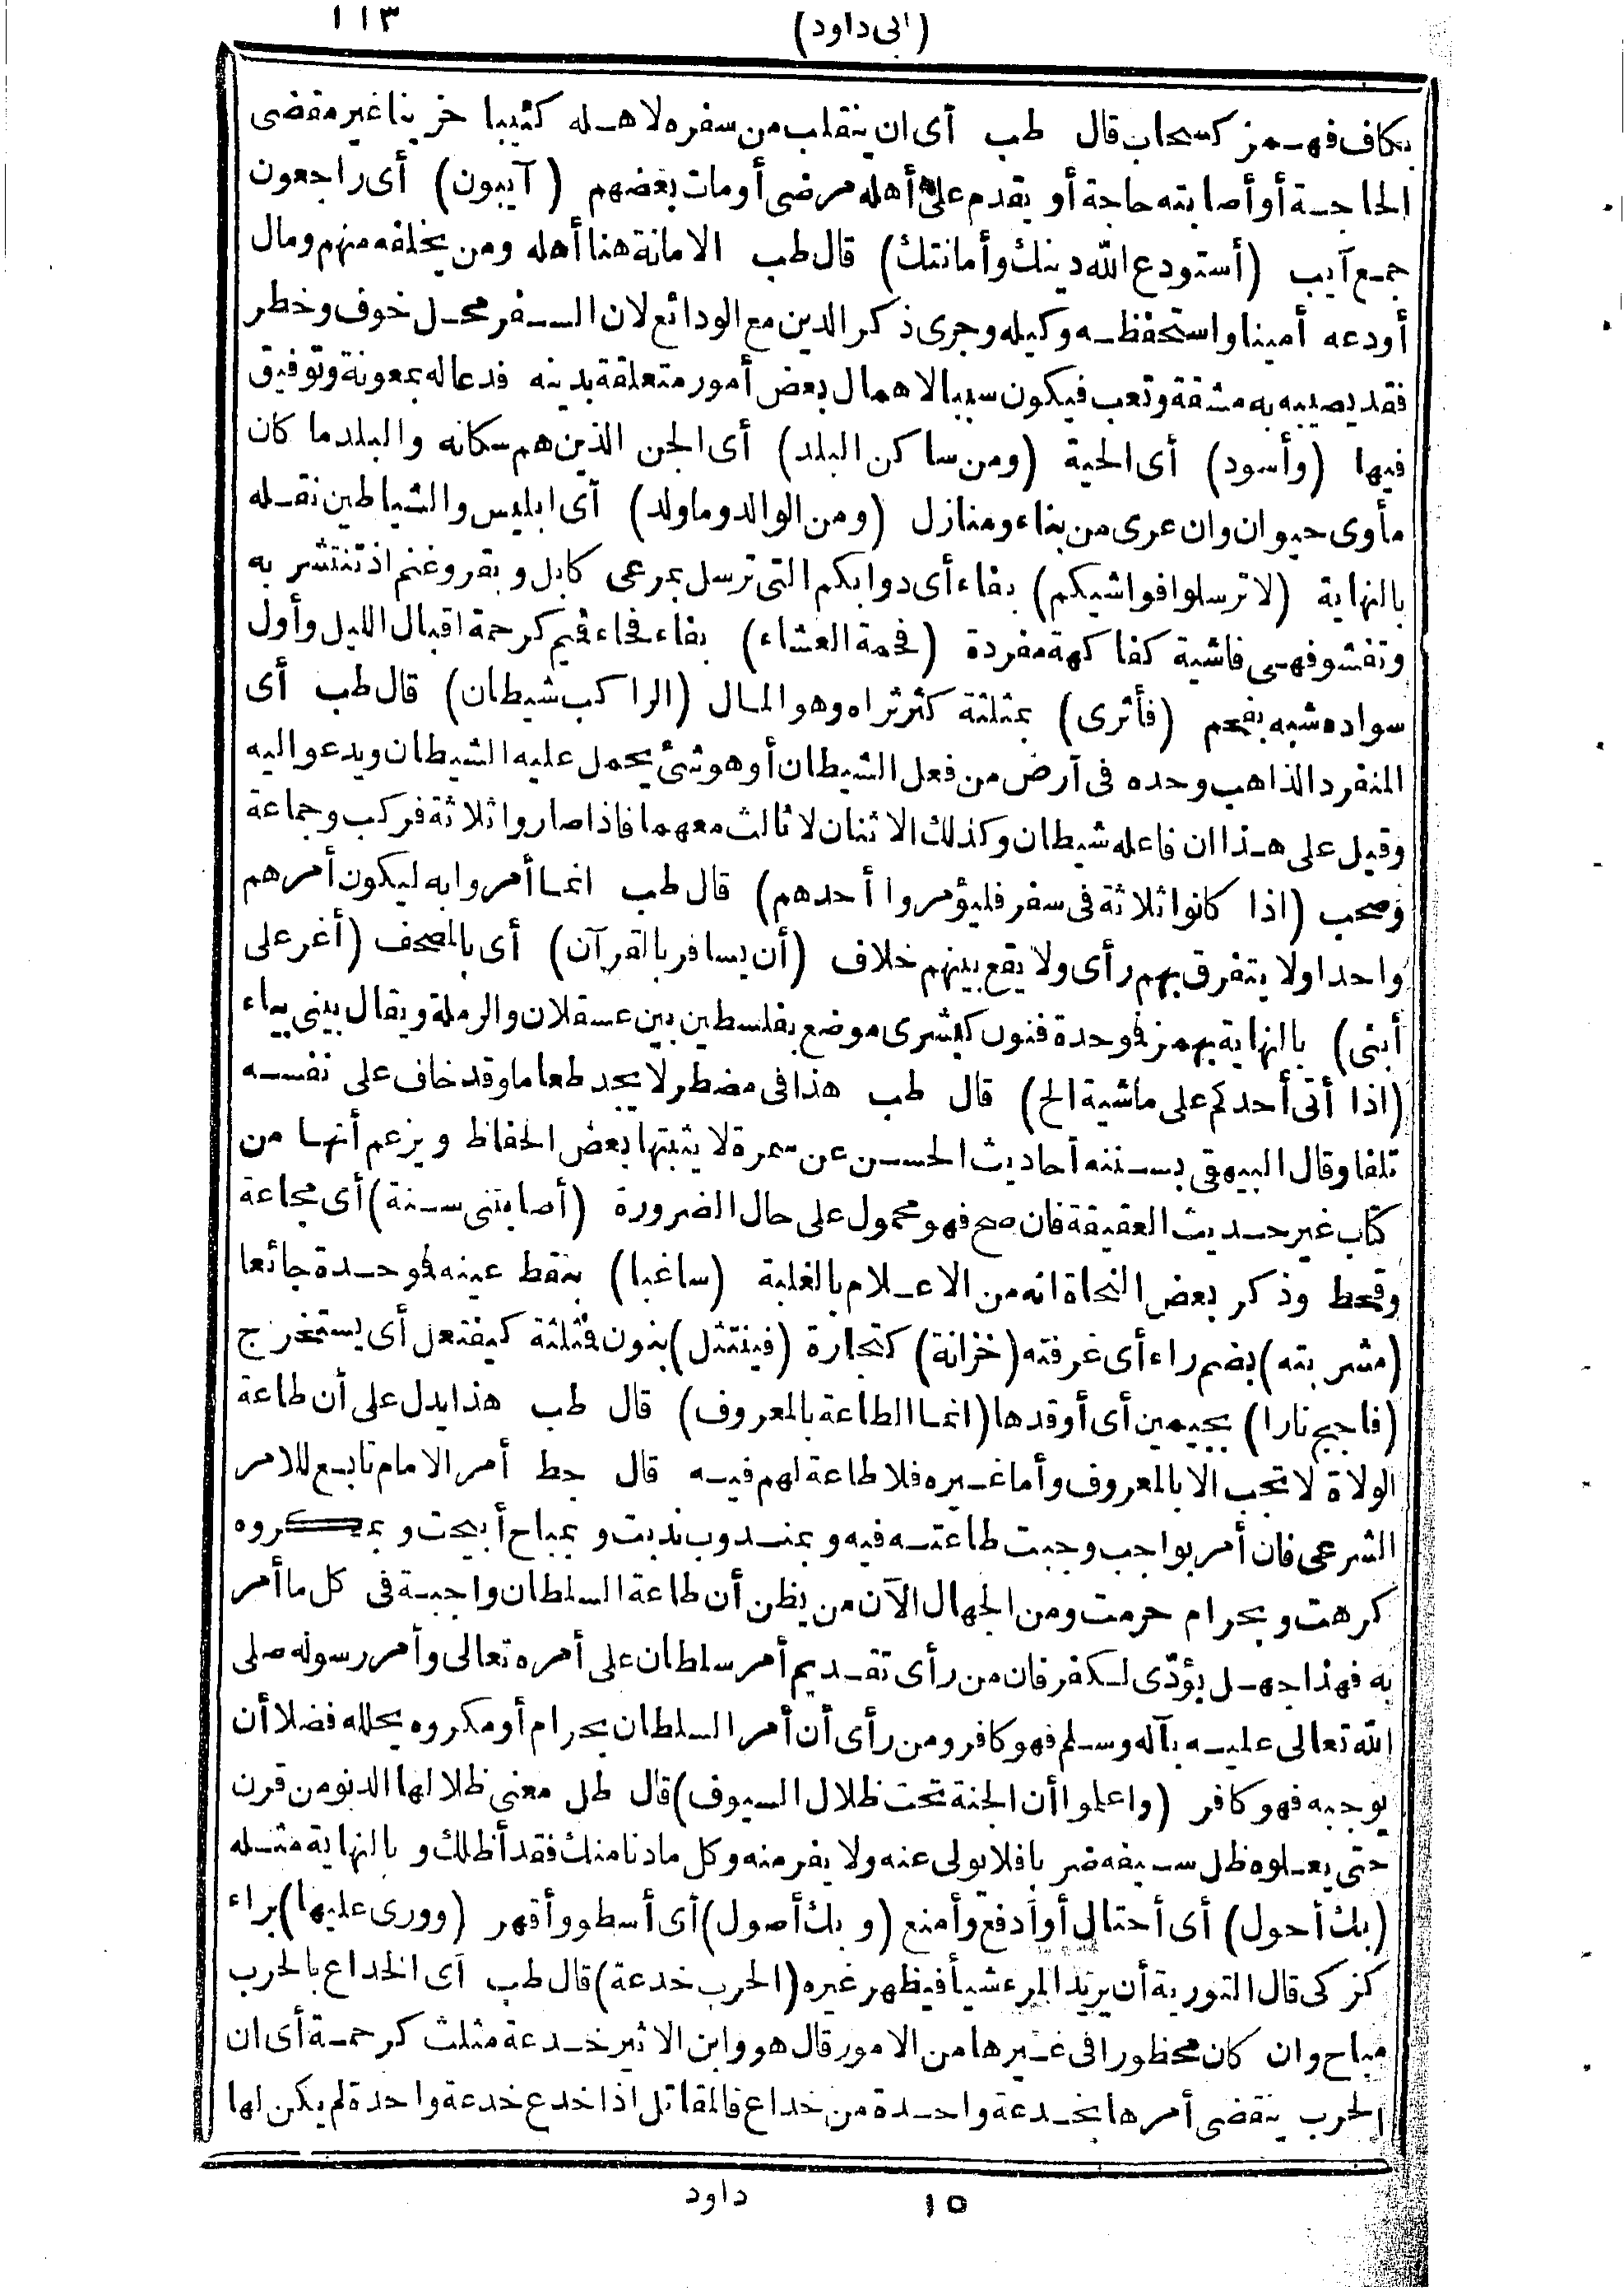 (ابى داود) ١١٣
بكاف فهمز كسحاب قال طب أى ان ينقلب من سفره لاهله كئيبا حزينا غير مقضى
الحاجة أو أصابته حاجة أو يقدم على أهله مرضى أو مات بعضهم (آيبون) أى راجعون
جمع آيب (أستودع الله دينك وأمانتك) قال طب الامانة هنا أهله ومن يخلفه منهم ومال
أودعه أمينا واستحفظه وكيله وجرى ذكر الدين مع الودائع لان السفر محل خوف وخطر
فقد يصيبه به مشقة وتعب فيكون سببا لاهمال بعض أمور متعلقة بدينه فدعا له بمعونة وتوفيق
فيها (وأسود) أى الحية (ومن ساكن البلد) أى الجن الذين هم سكانه والبلد ما كان
مأوى حيوان وان عرى من بناء ومنازل (ومن الوالد وما ولد) أى ابليس والشياطين نقله
بالنهاية (لا ترسلوا فواشيكم) بفاء أى دوابكم التى ترسل بمرعى كابل وبقر وغنم اذ تنتشر به
وتفشو فهى فاشية كفاكهة مفردة (فحمة العشاء) بفاء فحاء فميم كرحمة اقبال الليل وأول
سواده شبه بفحم (فأثرى) بمثلثة كثر ثراه وهو المال (الراكب شيطان) قال طب أى
المنفرد الذاهب وحده فى أرض من فعل الشيطان أو هو شئ يحمل عليه الشيطان ويدعو اليه
وقيل على هذا ان فاعله شيطان وكذلك الاثنان لا ثالث معهما فاذا صاروا ثلاثة فركب وجماعة
وصحب (اذا كانوا ثلاثة فى سفر فليؤمروا أحدهم) قال طب انما أمروا به ليكون أمرهم
واحدا ولا يتفرق بهم رأى ولا يقع بينهم خلاف (أن يسافر بالقرآن) أى بالمصحف (أغر على
أبنى) بالنهاية بهمز فوحدة فنون كبشرى موضع بفلسطين بين عسقلان والرملة ويقال يبنى بياء
(اذا أتى أحدكم على ماشية الخ) قال طب هذا فى مضطر لا يجد طعاما وقد خاف على نفسه
تلفا وقال البيهقى بسننه أحاديث الحسن عن سمرة لا يثبتها بعض الحفاظ ويزعم أنها من
كتاب غير حديث العقيقة فان صح فهو محمول على حال الضرورة (أصابتنى سنة) أى مجاعة
وقحط وذكر بعض النحاة انه من الاعلام بالغلبة (ساغبا) بنقط عينه فوحدة جائعا
(مشربته) بضم راء أى غرفته (خزانة) كتجارة (فينتثل) بنون فمثلثة كيفتعل أى يستخرج
(فاجج نارا) بجيمين أى أوقدها (انما الطاعة بالمعروف) قال طب هذا يدل على أن طاعة
الولاة لا تجب الا بالمعروف وأما غيره فلا طاعة لهم فيه قال جط أمر الامام تابع للامر
الشرعى فان أمر بواجب وجبت طاعته فيه وبمندوب ندبت وبمباح أبيحت وبمكروه
كرهت وبحرام حرمت ومن الجهال الآن من يظن أن طاعة السلطان واجبة فى كل ما أمر
به فهذا جهل يؤدّى لكفر فان من رأى تقديم أمر سلطان على أمره تعالى وأمر رسوله صلى
الله تعالى عليه بآله وسلم فهو كافر ومن رأى أن أمر السلطان بحرام أو مكروه يحلله فضلا أن
يوجبه فهو كافر (واعلموا أن الجنة تحت ظلال السيوف) قال طل معنى ظلالها الدنو من قرن
حتى يعلوه ظل سيفه ضربا فلا يولى عنه ولا يفر منه وكل ما دنا منك فقد أظلك وبالنهاية مثله
(بك أحول) أى أحتال أو أدفع وأمنع (وبك أصول) أى أسطو وأقهر (وورى عليها) براء
كزكى قال التورية أن يريد المرء شيأ فيظهر غيره (الحرب خدعة) قال طب أى الخداع بالحرب
مباح وان كان محظورا فى غيرها من الامور قال هو وابن الاثير خدعة مثلث كرحمة أى ان
الحرب ينقضى أمرها بخدعة واحدة من خداع فالمقاتل اذا خدع خدعة واحدة لم يكن لها
١٥ داود